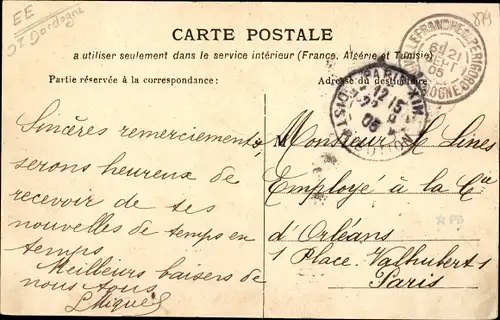 EE
Dordogne
879
CARTE POSTALE
a utiliser seulement dans le service intérieur (France, Algérie et Tunisie)
Partie réservée à la correspondance:
Adresse du destinataire
VILLEFRANCHE DU PERIGORD
6E 21
SEPT
05
DORDOGNE
PARIS XIII
12 15
22 9
05
DISTRIBUTION
Sincères remerciements,
serons heureux de
recevoir de tes
nouvelles de temps en
temps
Meilleurs baisers de
nous tous
M
Monsieur L. Lines
Employé à la Cie
d'Orléans
1 Place Valhubert 1
Paris
PB